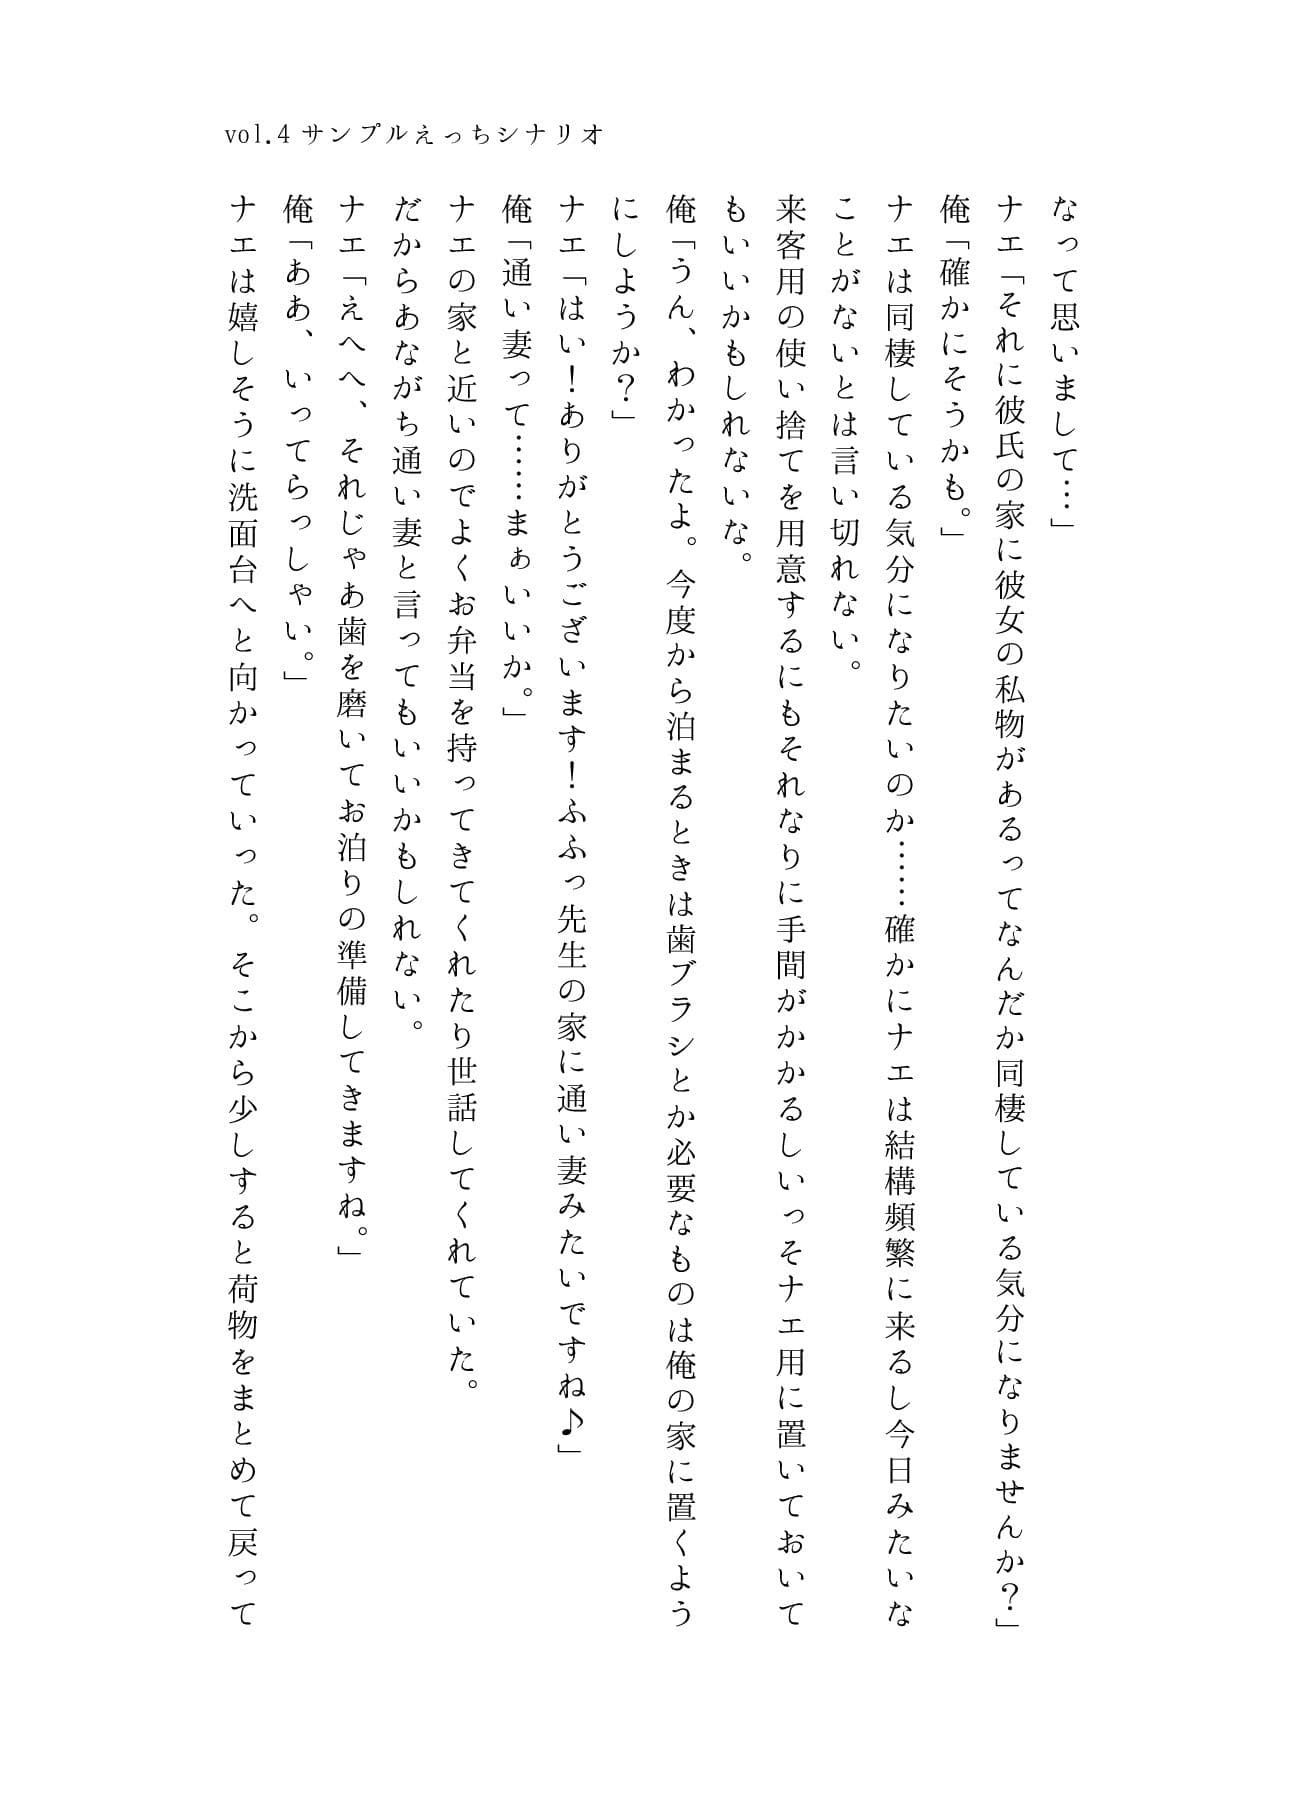 vol.4 サンプルえっちシナリオ
なって思いまして…」
ナエ「それに彼氏の家に彼女の私物があるってなんだか同棲している気分になりませんか？」
俺「確かにそうかも。」
ナエは同棲している気分になりたいのか……確かにナエは結構頻繁に来るし今日みたいな
ことがないとは言い切れない。
来客用の使い捨てを用意するにもそれなりに手間がかかるしいっそナエ用に置いておいて
もいいかもしれないな。
俺「うん、わかったよ。今度から泊まるときは歯ブラシとか必要なものは俺の家に置くよう
にしようか？」
ナエ「はい！ありがとうございます！ふふっ先生の家に通い妻みたいですね♪」
俺「通い妻って……まぁいいか。」
ナエの家と近いのでよくお弁当を持ってきてくれたり世話してくれていた。
だからあながち通い妻と言ってもいいかもしれない。
ナエ「えへへ、それじゃあ歯を磨いてお泊りの準備してきますね。」
俺「ああ、いってらっしゃい。」
ナエは嬉しそうに洗面台へと向かっていった。そこから少しすると荷物をまとめて戻って